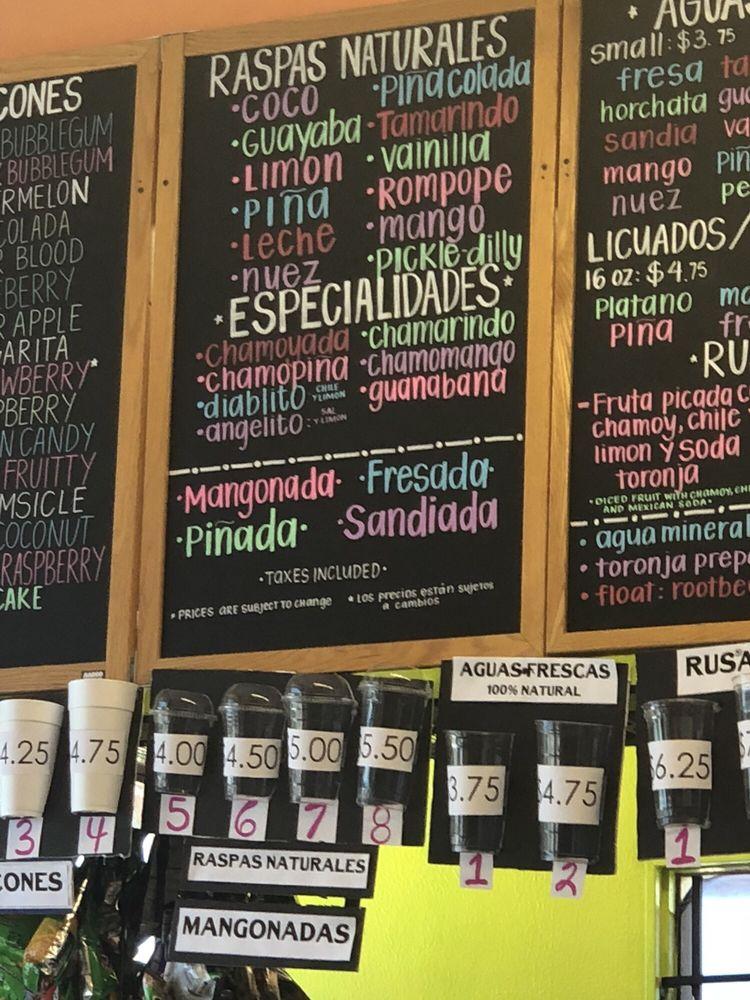 CONES
BUBBLEGUM
BUBBLEGUM
RMELON
COLADA
BLOOD
BERRY
APPLE
ARITA
WBERRY*
PBERRY
N CANDY
FRUITTY
MSICLE
COCONUT
RASPBERRY
CAKE
RASPAS NATURALES
•COCO
•GUAYABA
•LIMON
•PIÑA
•LECHE
•NUEZ
•PIÑA COLADA
•TAMARINDO
•VAINILLA
•ROMPOPE
•MANGO
•PICKLE-DILLY
*ESPECIALIDADES*
•CHAMOYADA
•CHAMOPIÑA
•DIABLITO CHILE Y LIMON
•ANGELITO: SAL Y LIMON
•CHAMARINDO
•CHAMOMANGO
•GUANABANA
•Mangonada• •Fresada•
•Piñada• •Sandiada
•TAXES INCLUDED•
*PRICES ARE SUBJECT TO CHANGE
*LOS PRECIOS ESTÁN SUJETOS
A CAMBIOS
* AGUAS
small: $3.75
fresa
horchata
sandia
mango
nuez
LICUADOS/
16 oz: $4.75
Platano
Piña
*RU
-Fruta picada c
chamoy, chile
limon y soda
toronja
*DICED FRUIT WITH CHAMOY, CHI
AND MEXICAN SODA*
• agua mineral
• toronja prep
• float: rootbe
4.25
4.75
4.00
4.50
5.00
5.50
3
4
5
6
7
8
CONES
RASPAS NATURALES
MANGONADAS
AGUAS FRESCAS
100% NATURAL
3.75
4.75
1
2
RUSA
$6.25
1